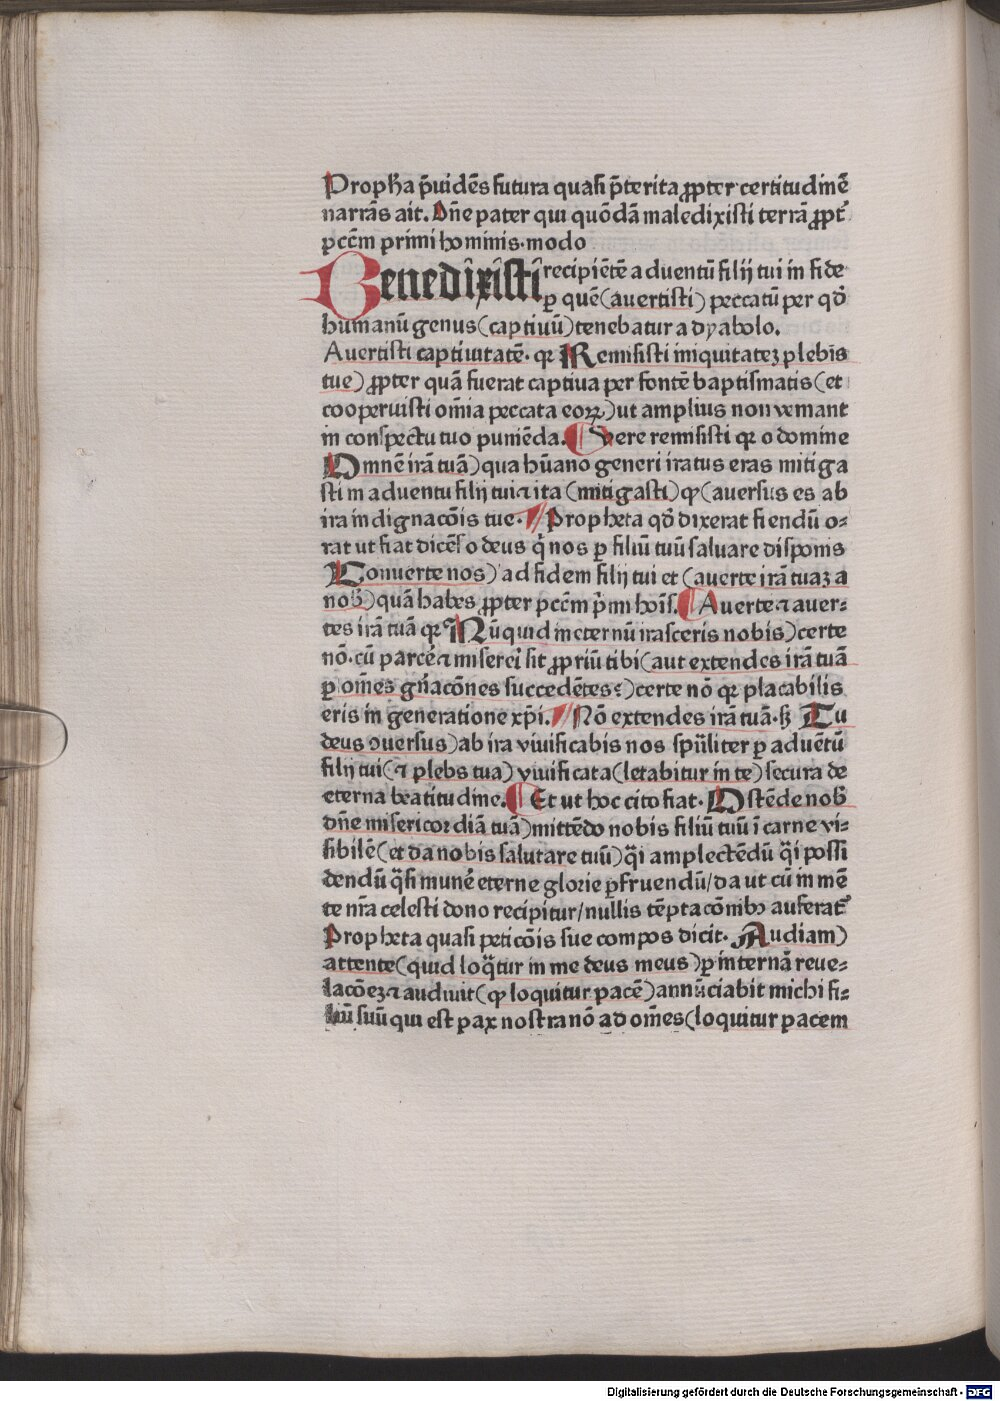 Propħa p̄uidēs futura quaſi p̄terita ꝓpter certitudinē
narrās ait. Dn̄e pater qui quōdā maledixiſti terrā ꝓpt̄
pccm̄ primi hominis·modo
Benedixiſti recipiētē aduentū filij tui in fide
ꝑ quē(auertiſti) peccatū per qd̄
humanū genus(captiuū)tenebatur a dyabolo.
Auertiſti captiuitatē· qꝛ Remiſiſti iniquitateʒ plebis
tue) ꝓpter quā fuerat captiua per fontē baptiſmatis(et
cooperuiſti om̄ia peccata eoꝝ)ut amplius non veniant
in conſpectu tuo puniēda. ¶ Vere remiſiſti qꝛ o domine
Omnē irā tuā)qua hūano generi iratus eras mitiga
ſti in aduentu filij tui⁊ ita (mitigaſti) qꝫ(auerſus es ab
ira indignacōis tue· // Propheta qd̄ dixerat fiendū o⸗
rat ut fiat dicēs o deus q̄ nos ꝑ filiū tuū ſaluare diſponis
Conuerte nos) ad fidem filij tui et (auerte irā tuaʒ a
nob̄)quā habes ꝓpter pccm̄ p̄mi hoīs. ¶ Auerte⁊ auer⸗
tes irā tuā qꝛ Nūquid ineternū iraſceris nobis)certe
nō· cū parcē⁊ miſereri ſit ꝓpriū tibi(aut extendes irā tuā
ꝑ om̄es gn̄acōnes ſuccedētes:)certe nō qꝛ placabilis
eris in generatione xp̄i. // Nō extendes irā tuā·ſʒ Tu
deus ꝯuerſus)ab ira viuificabis nos ſpūliter ꝑ aduētū
filij tui(⁊ plebs tua) viuificata(letabitur in te)ſecura de
eterna beatitudine. ¶ Et ut hoc cito fiat· Oſtēde nob̄
dn̄e miſericordiā tuā)mittēdo nobis filiū tuū ī carne vi⸗
ſibilē(et da nobis ſalutare tuū)q̄i amplectēdū q̄i poſſi
dendū q̄ſi munē eterne glorie ꝑfruendū/da ut cū in mē
te nr̄a celeſti dono recipitur/nullis tēptacōnibꝰ auferat̄
Propheta quaſi peticōis ſue compos dicit· Audiam)
attente(quid loq̄tur in me deus meus)ꝑ internā reue⸗
lacōeʒ⁊ audiuit(qꝫ loquitur pacē)annūciabit michi fi⸗
liū ſuū qui eſt pax noſtra nō ad om̄es(loquitur pacem
Digitalisierung gefördert durch die Deutsche Forschungsgemeinschaft - DFG